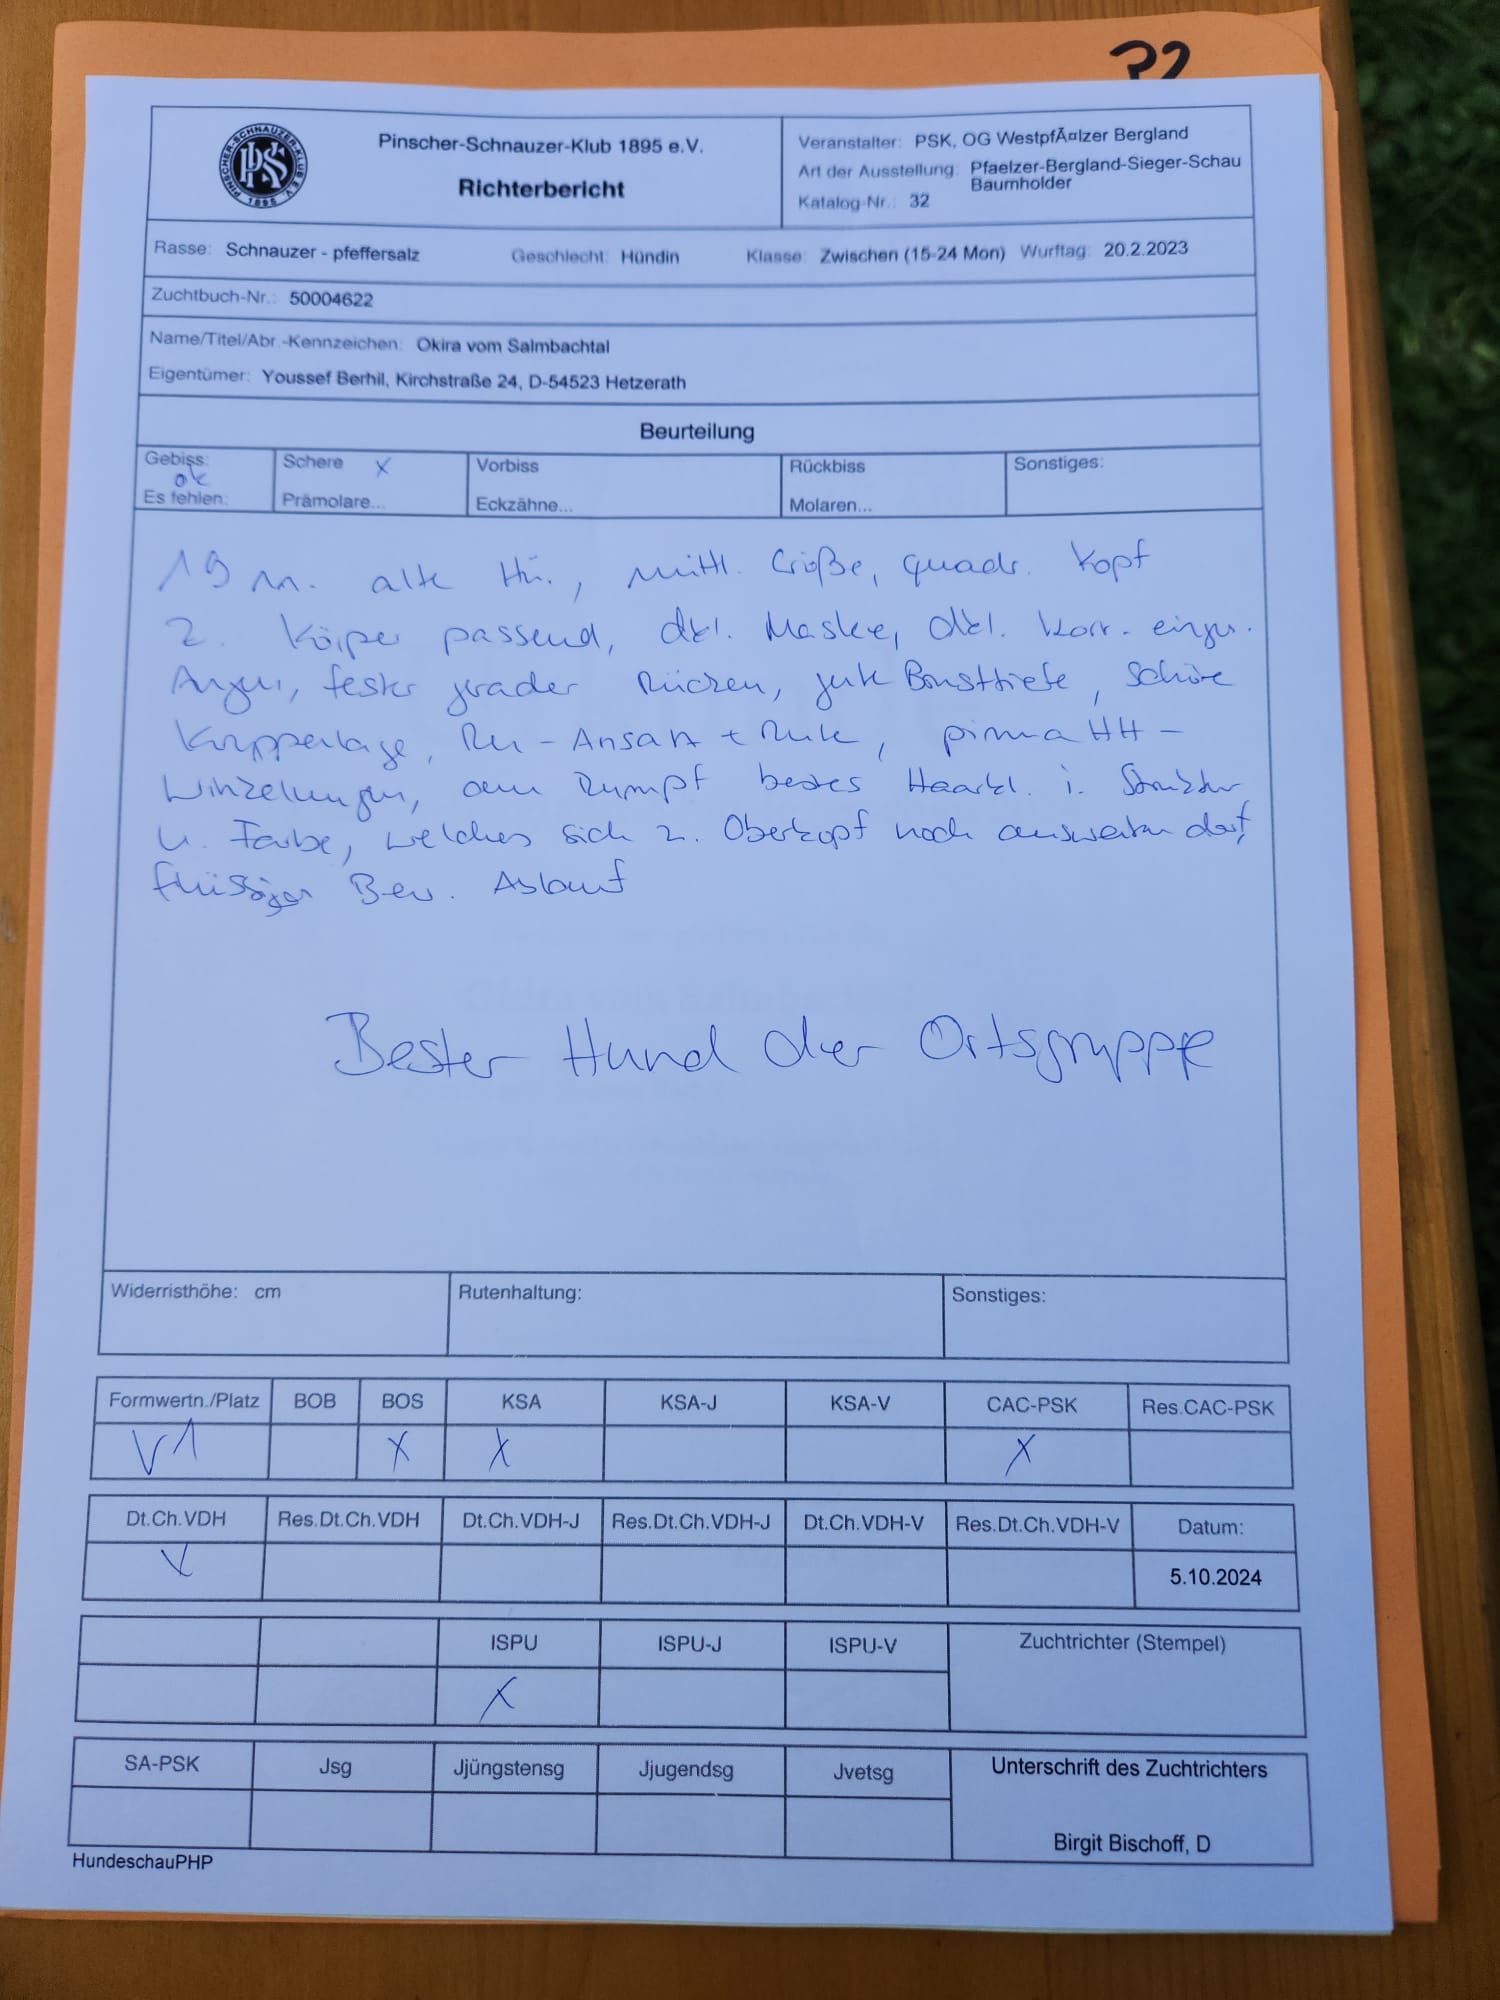 32
PINSCHER-SCHNAUZER-KLUB E.V.
PSK
1895
Pinscher-Schnauzer-Klub 1895 e.V.
Richterbericht
Veranstalter: PSK, OG WestpfÃ¤lzer Bergland
Art der Ausstellung: Pfaelzer-Bergland-Sieger-Schau
Baumholder
Katalog-Nr.: 32
Rasse: Schnauzer - pfeffersalz Geschlecht: Hündin Klasse: Zwischen (15-24 Mon) Wurftag: 20.2.2023
Zuchtbuch-Nr.: 50004622
Name/Titel/Abr.-Kennzeichen: Okira vom Salmbachtal
Eigentümer: Youssef Berhil, Kirchstraße 24, D-54523 Hetzerath
Beurteilung
Gebiss: Schere X Vorbiss Rückbiss Sonstiges:
ok
Es fehlen: Prämolare... Eckzähne... Molaren...
19 M. alte Hü., mittl. Größe, quadr. Kopf
z. Körper passend, dkl. Maske, dkl. korr. einges.
Augen, fester grader Rücken, gute Brusttiefe, schöne
Kruppenlage, Ru-Ansatz + Rute, prima HH-
Winkelungen, am Rumpf bestes Haarkl. i. Struktur
u. Farbe, welches sich z. Oberkopf noch ausweiten darf,
flüssiger Bew. Ablauf
Bester Hund der Ortsgruppe
Widerristhöhe: cm Rutenhaltung: Sonstiges:
Formwertn./Platz BOB BOS KSA KSA-J KSA-V CAC-PSK Res.CAC-PSK
V1 X X X
Dt.Ch.VDH Res.Dt.Ch.VDH Dt.Ch.VDH-J Res.Dt.Ch.VDH-J Dt.Ch.VDH-V Res.Dt.Ch.VDH-V Datum:
X 5.10.2024
ISPU ISPU-J ISPU-V Zuchtrichter (Stempel)
X
SA-PSK Jsg Jjüngstensg Jjugendsg Jvetsg Unterschrift des Zuchtrichters
Birgit Bischoff, D
HundeschauPHP